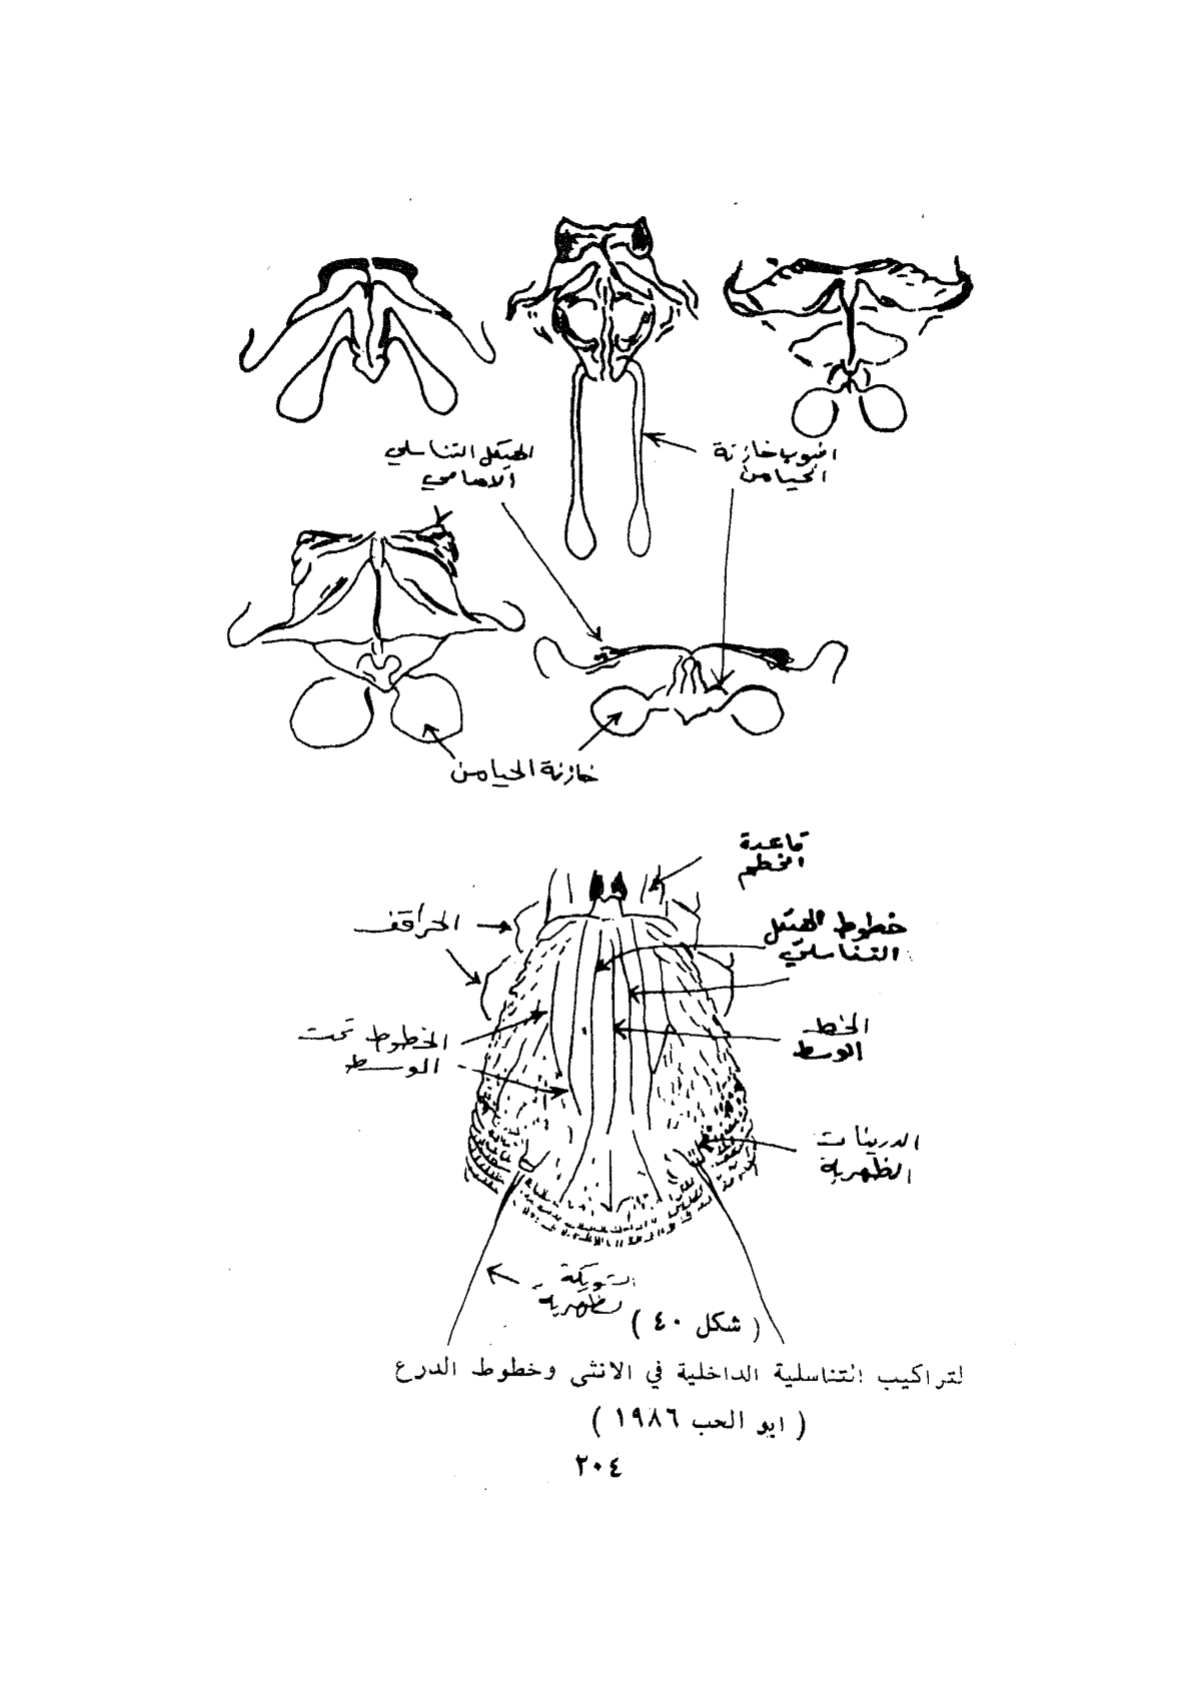 الهيكل التناسلي
الامامي
انبوب خازنة
الحيامن
خازنة الحيامن
قاعدة
الخطم
الحراقف
خطوط الهيكل
التناسلي
الخطوط تحت
الوسط
الخط
الوسط
الدرينات
الظهرية
الشويكة
الظهرية
( شكل ٤٠ )
لتراكيب التناسلية الداخلية في الانثى وخطوط الدرع
( ابو الحب ١٩٨٦ )
٢٠٤